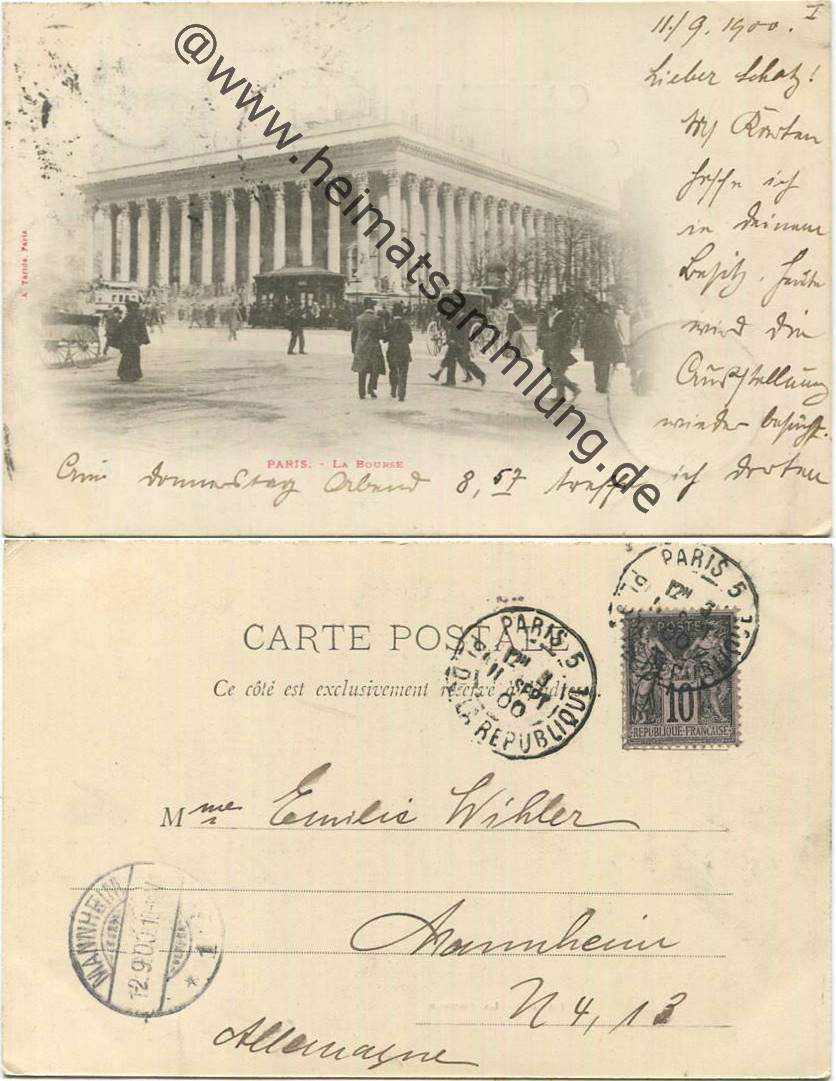 11./9. 1900. I
Lieber Schatz!
Karten
hoffe ich
in deinem
Besitz. Heute
wird die
Ausstellung
wieder besucht.
PARIS. - LA BOURSE
Am Donnerstag Abend 8,57 treffe ich dorten
A. Taride, Paris
@www.heimatsammlung.de
CARTE POSTALE
Ce côté est exclusivement réservé à l'adresse.
PARIS 5
12M
11 SEPT
00
PL. DE LA REPUBLIQUE
PARIS 5
12M
POSTE
10
REPUBLIQUE FRANÇAISE
Mme Emilie Wihler
Mannheim
N 4, 13
Allemagne
MANNHEIM
12.9.00
* 1